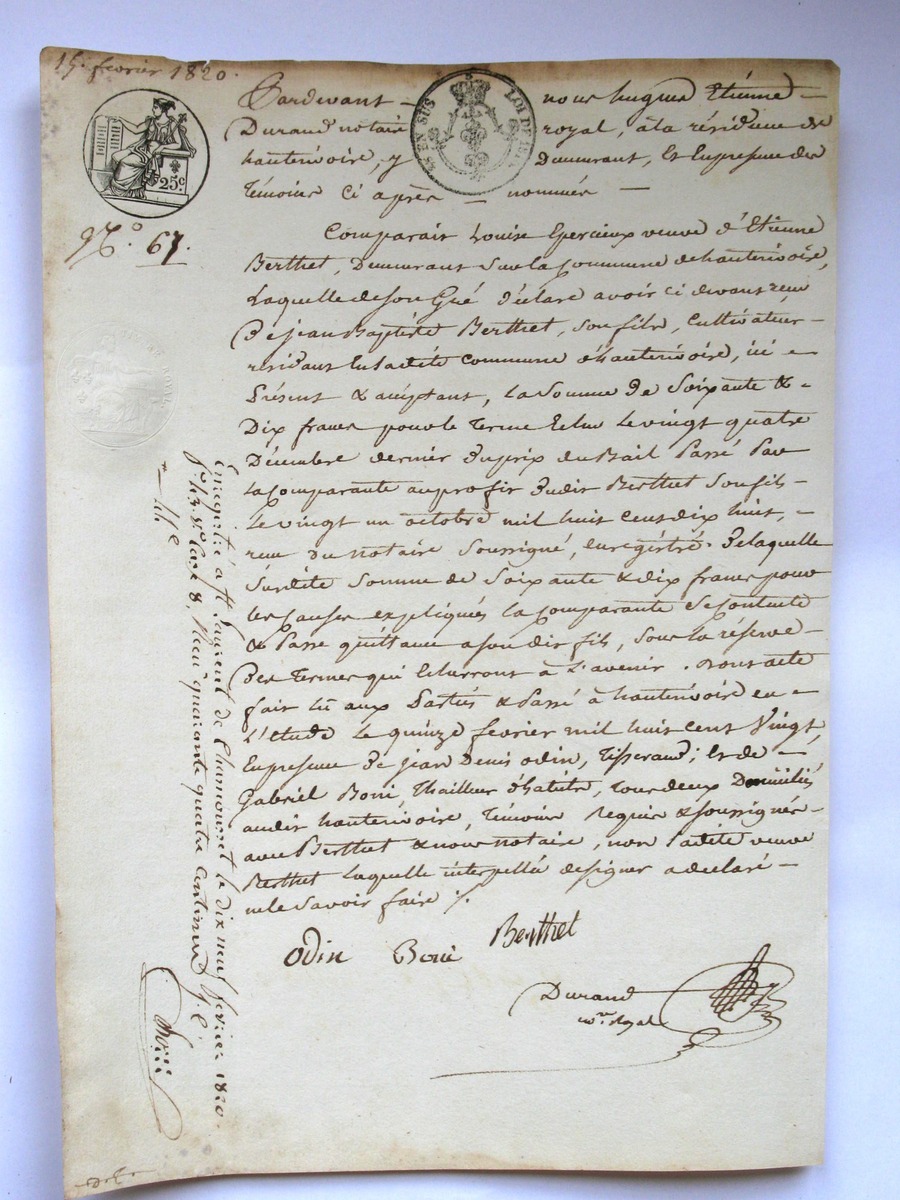 15. fevrier 1820.
25c
EN SUS LOI DE
Pardevant nous hugues Etienne
Durand notaire royal, à la résidence de
hauterivoire, y demeurant, Et En presence des
Témoins Ci après nommés
N.o 67.
Comparait Louise Epercieux veuve d'Etienne
Berthet, Demeurant Sur la Commune de hauterivoire,
Laquelle de Son Gré déclare avoir ci devant reçu
De jean Baptiste Berthet, Son fils, Cultivateur
résidant En Ladite Commune d'hauterivoire, ici
Présent & acceptant, La Somme De Soixante &
Dix francs pour le Terme Echu Le vingt quatre
Décembre dernier Du prix du Bail Passé Par
La Comparante au profit Dudit Berthet Son fils
Le vingt un octobre mil huit Cent dix huit,
reçu Du Notaire Soussigné, Enregistré. De laquelle
Susdite Somme de Soixante & dix francs pour
les Causes expliquées la Comparante Se Contente
& Passe quittance a Son dit fils, Sous la réserve
Des Termes qui Echurront à L'avenir. Dont acte
fait lû aux Parties & Passé à hauterivoire en
L'étude Le quinze février mil huit Cent Vingt,
En presence De jean Denis Odin, Tisserand; Et de
Gabriel Boni, Thailleur d'habits, Tous deux Domiciliés
audit hauterivoire, Témoins Requis & Soussignés
avec Berthet & nous notaire, non Ladite veuve
Berthet Laquelle interpellée de signer a declaré
ne le Savoir faire ./.
Odin Boni Berthet
Durand
n.re Royal
Enregistré à St Laurent de Chamousset le dix neuf février 1820.
f.o 43 v.o Case 8. Reçu quarante quatre Centimes
44c